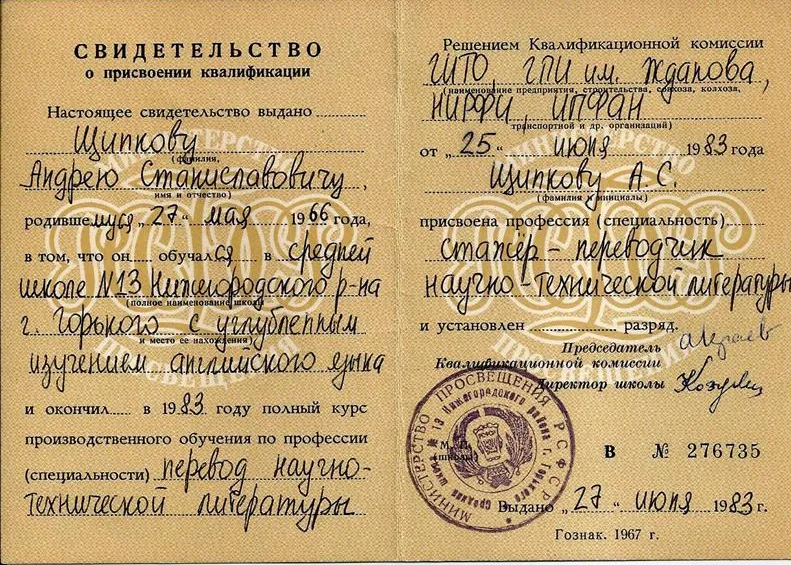 СВИДЕТЕЛЬСТВО
о присвоении квалификации
Настоящее свидетельство выдано
Щипкову
(фамилия,
Андрею Станиславовичу,
имя и отчество)
родившемуся „27“ мая 1966 года,
в том, что он обучался в средней
школе N13 Нижегородского р-на
(полное наименование школы
г. Горького с углубленным
и место ее нахождения)
изучением английского языка
и окончил в 1983 году полный курс
производственного обучения по профессии
(специальности) перевод научно-
технической литературы
Решением Квалификационной комиссии
ГИТО, ГПИ им. Жданова,
(наименование предприятия, строительства, совхоза, колхоза,
НИРФИ, ИПФАН
транспортной и др. организаций)
от „25“ июня 1983 года
Щипкову А.С.
(фамилия и инициалы)
присвоена профессия (специальность)
стажёр-переводчик
научно-технической литературы
и установлен разряд.
Председатель
Квалификационной комиссии
Директор школы
М. П.
(школы)
МИНИСТЕРСТВО ПРОСВЕЩЕНИЯ РСФСР
Средняя школа № 13 Нижегородского района г. Горького
В № 276735
Выдано „27“ июня 1983 г.
Гознак. 1967 г.
МИНИСТЕРСТВО
РСФСР
ПРОСВЕЩЕНИЯ
МИНИСТЕРСТВО
РСФСР
ПРОСВЕЩЕНИЯ